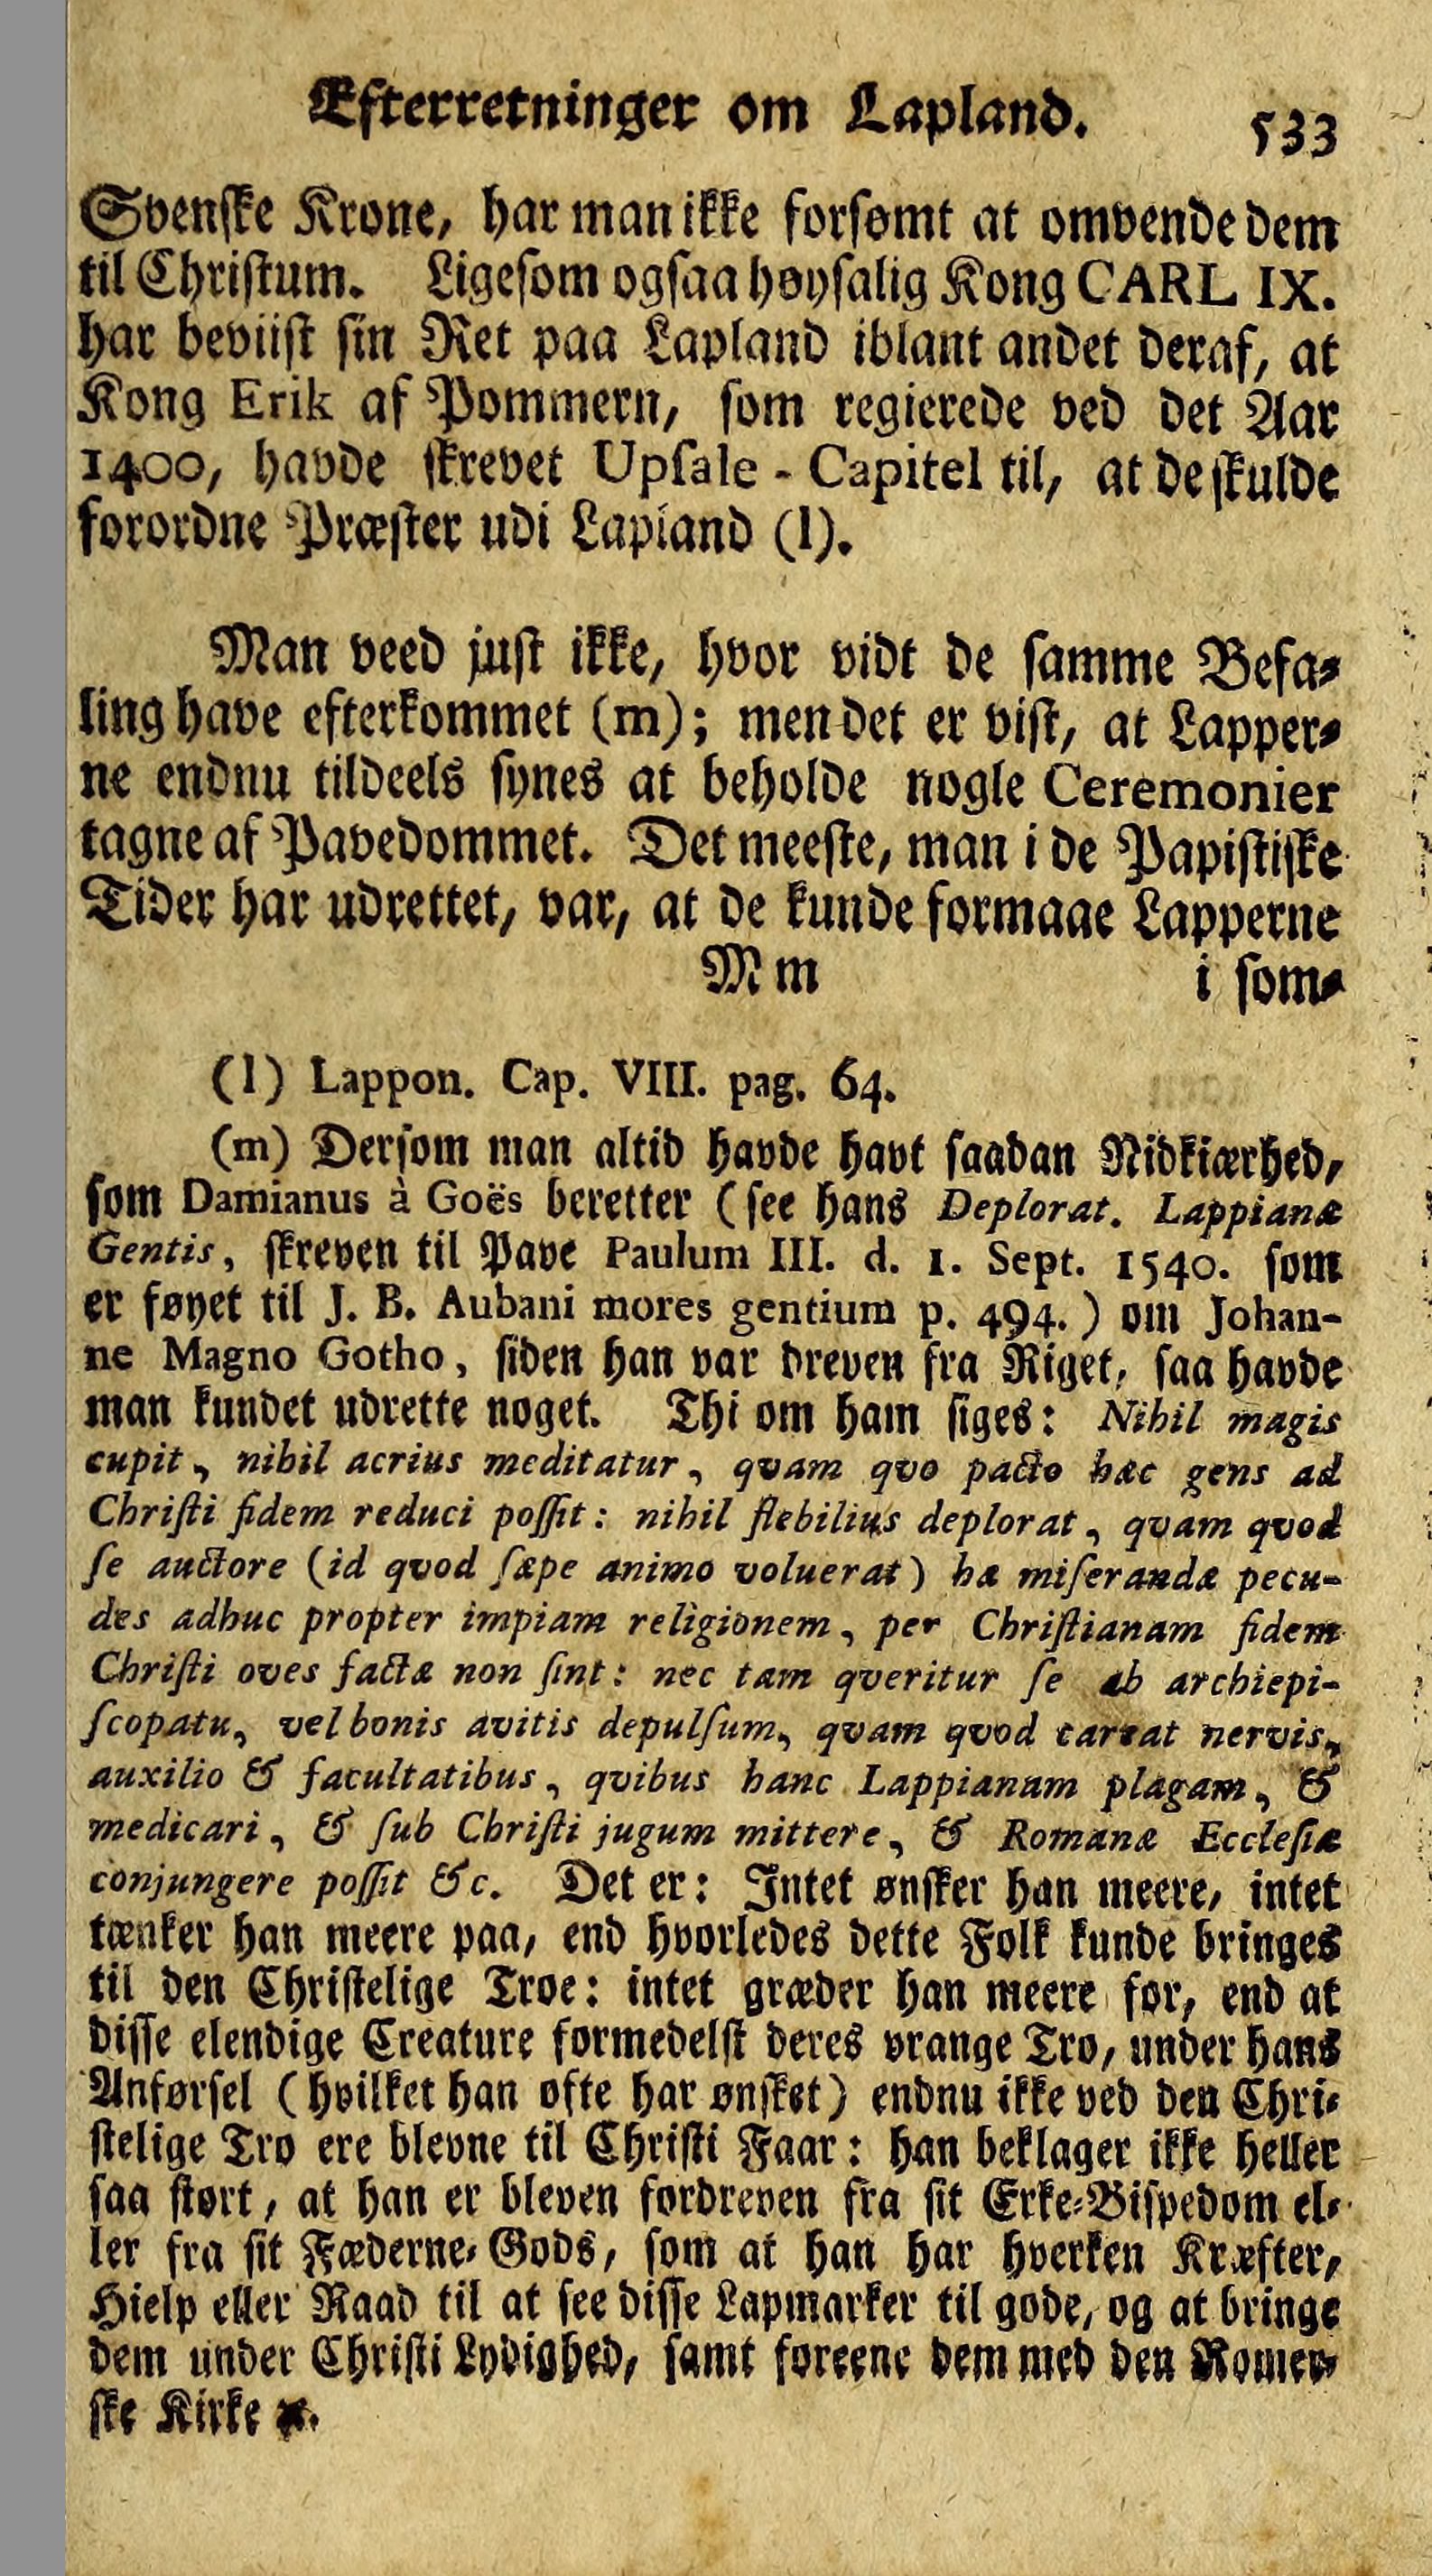 Efterretninger om Lapland. 533
Svenske Krone, har man ikke forsømt at omvende dem
til Christum. Ligesom ogsaa høysalig Kong CARL IX.
har beviist sin Ret paa Lapland iblant andet deraf, at
Kong Erik af Pommern, som regierede ved det Aar
1400, havde skrevet Upsale - Capitel til, at de skulde
forordne Præster udi Lapland (l).
Man veed just ikke, hvor vidt de samme Befa-
ling have efterkommet (m); men det er vist, at Lapper-
ne endnu tildeels synes at beholde nogle Ceremonier
tagne af Pavedommet. Det meeste, man i de Papistiske
Tider har udrettet, var, at de kunde formaae Lapperne
M m i som-
(l) Lappon. Cap. VIII. pag. 64.
(m) Dersom man altid havde havt saadan Nidkiærhed,
som Damianus à Goës beretter (see hans Deplorat. Lappianæ
Gentis, skreven til Pave Paulum III. d. 1. Sept. 1540. som
er føyet til J. B. Aubani mores gentium p. 494.) om Johan-
ne Magno Gotho, siden han var dreven fra Riget, saa havde
man kundet udrette noget. Thi om ham siges: Nihil magis
cupit, nihil acrius meditatur, qvam qvo pacto hæc gens ad
Christi fidem reduci possit: nihil flebilius deplorat, qvam qvod
se auctore (id qvod sæpe animo voluerat) hæ miserandæ pecu-
des adhuc propter impiam religionem, per Christianam fidem
Christi oves factæ non sint: nec tam qveritur se ab archiepi-
scopatu, vel bonis avitis depulsum, qvam qvod careat nervis,
auxilio & facultatibus, qvibus hanc Lappianam plagam, &
medicari, & sub Christi jugum mittere, & Romanæ Ecclesiæ
conjungere possit &c. Det er: Intet ønsker han meere, intet
tænker han meere paa, end hvorledes dette Folk kunde bringes
til den Christelige Troe: intet græder han meere for, end at
disse elendige Creature formedelst deres vrange Tro, under hans
Anførsel (hvilket han ofte har ønsket) endnu ikke ved den Chri-
stelige Tro ere blevne til Christi Faar: han beklager ikke heller
saa stort, at han er bleven fordreven fra sit Erke-Bispedom el-
ler fra sit Fæderne-Gods, som at han har hverken Kræfter,
Hielp eller Raad til at see disse Lapmarker til gode, og at bringe
dem under Christi Lydighed, samt foreene dem med den Romer-
ske Kirke ꝛc.